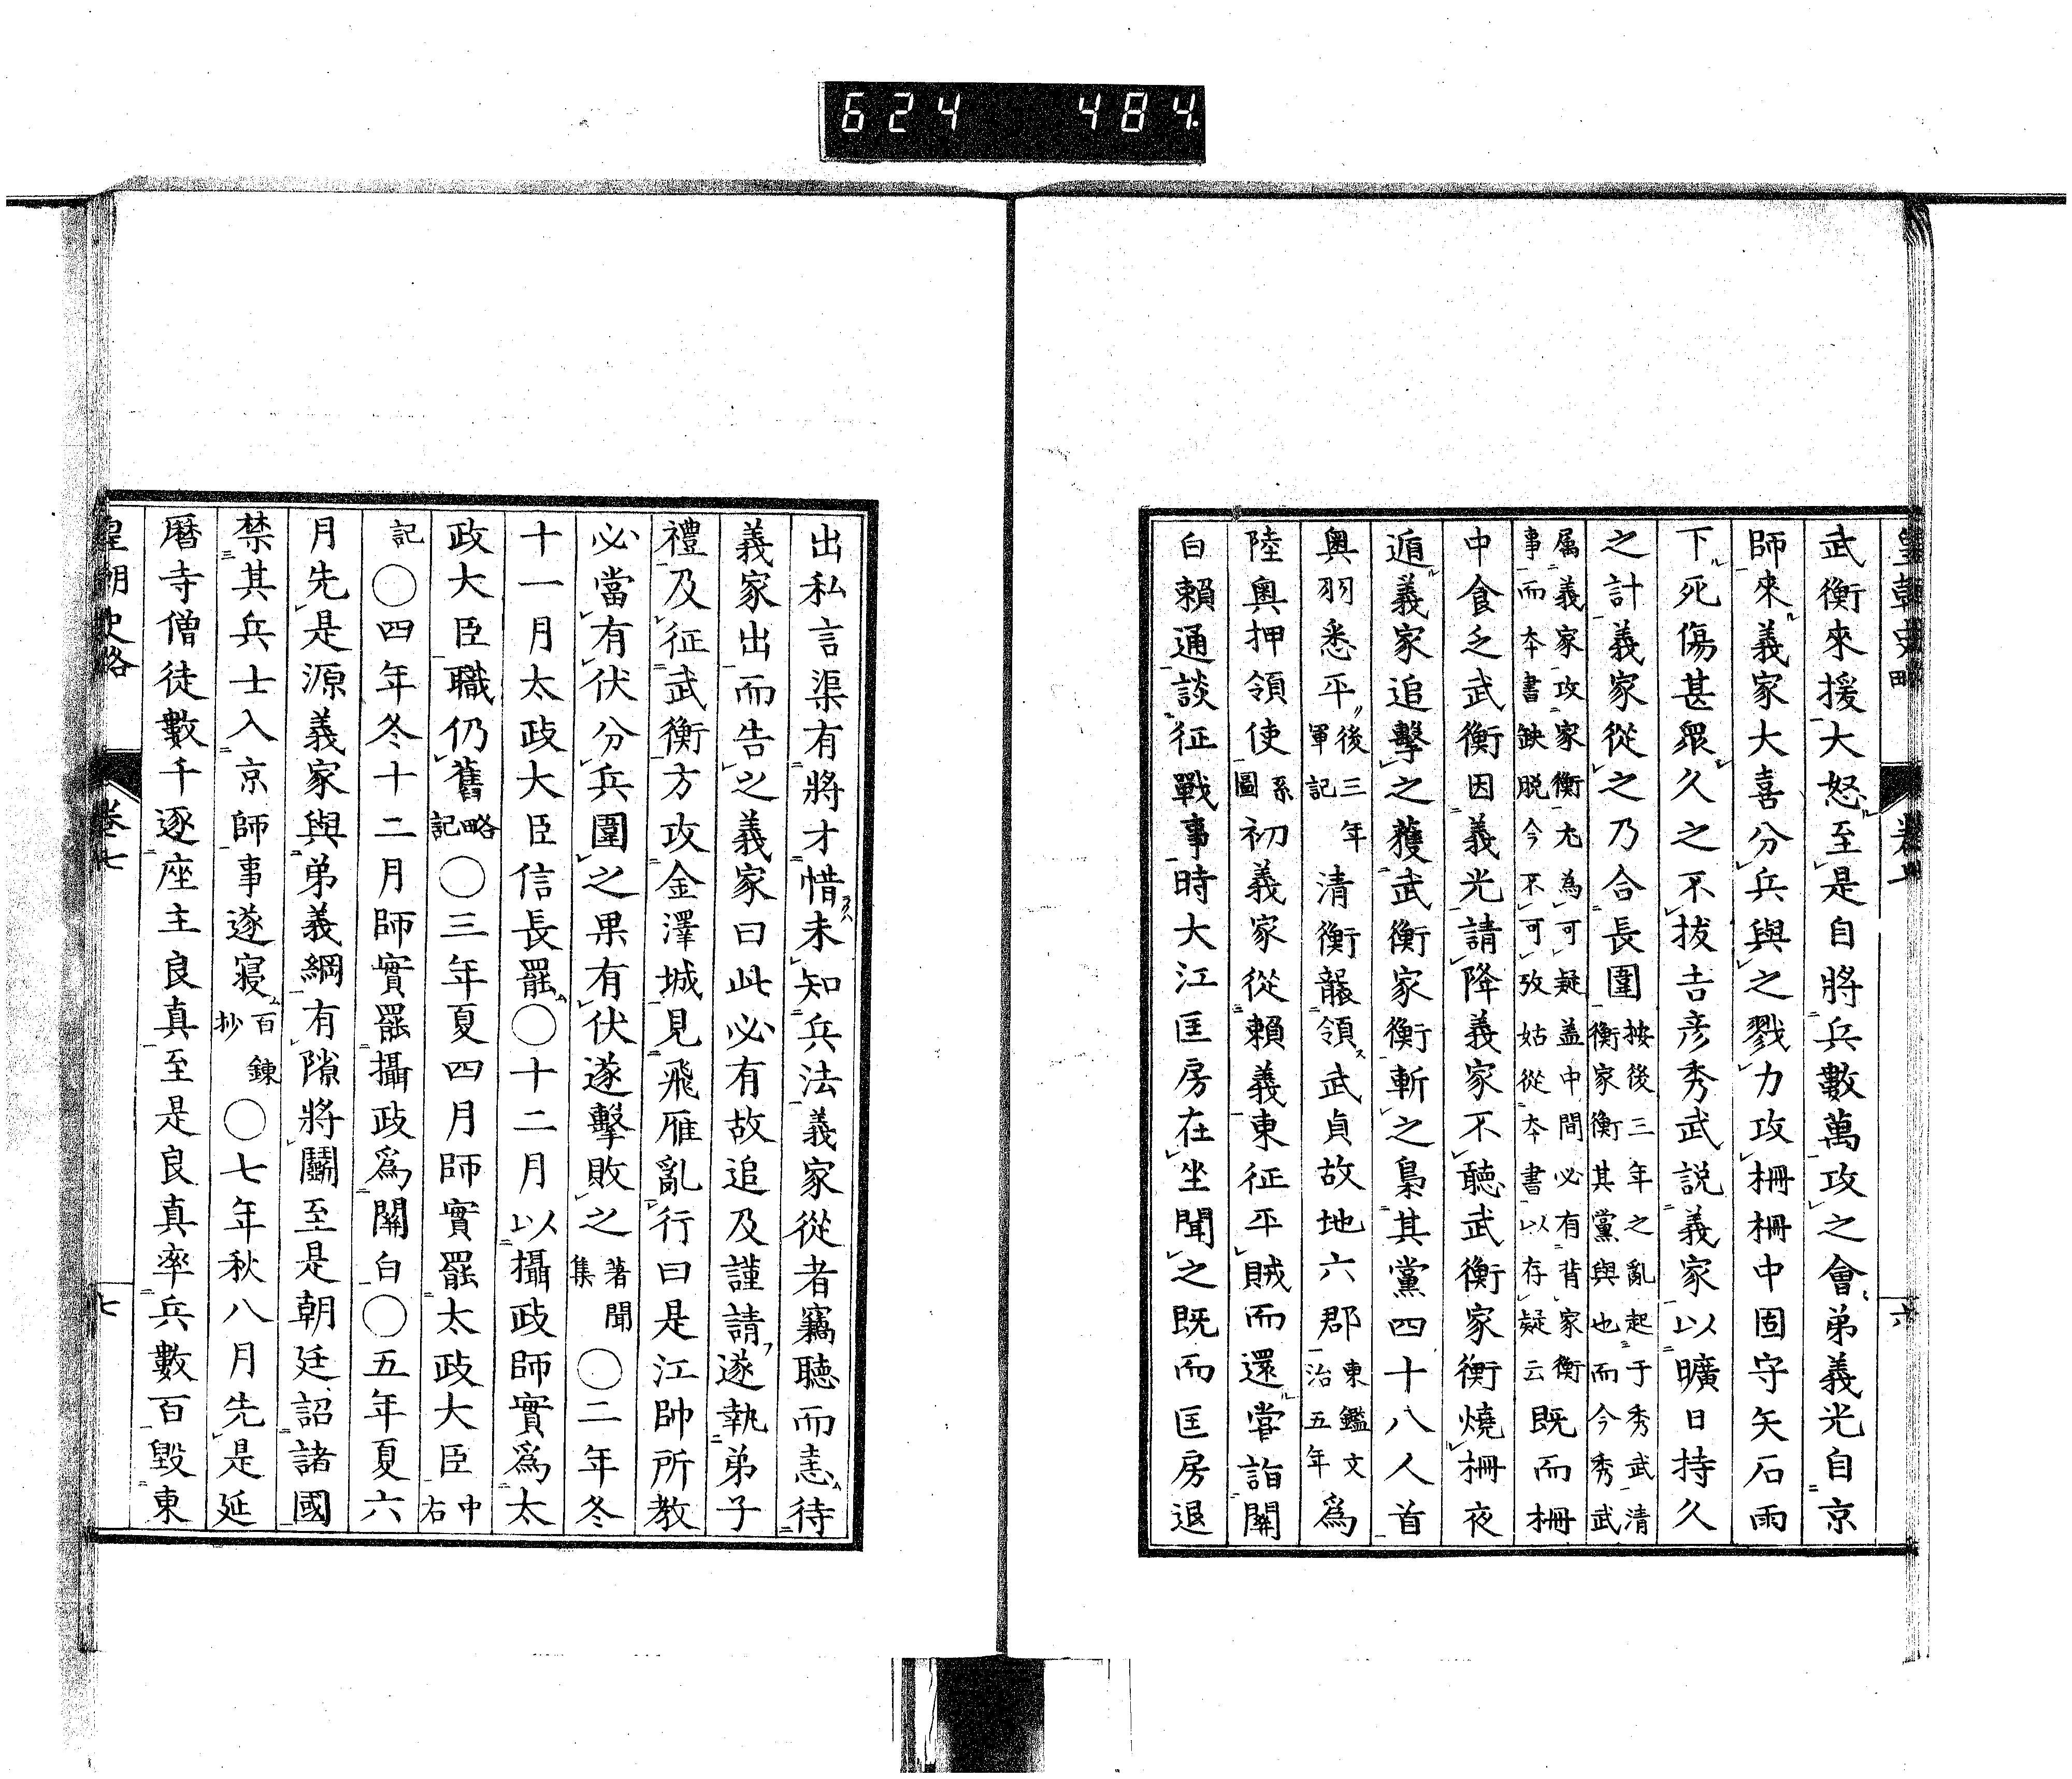 624 484
皇朝史略 卷七 六
武衡來援大怒至是自將兵數萬攻之會弟義光自京
師來義家大喜分兵與之戮力攻柵柵中固守矢石雨
下死傷甚眾久之不拔吉彦秀武説義家以曠日持久
之計義家從之乃合長圍按後三年之亂起于秀武清衡家衡其黨與也而今秀武
属義家攻家衡尤為可疑盖中間必有背家衡事而本書缺脱今不可攷姑從本書以存疑云既而柵
中食乏武衡因義光請降義家不聽武衡家衡燒柵夜
遁義家追擊之獲武衡家衡斬之梟其黨四十八人首
奥羽悉平後三年軍記清衡襲領武貞故地六郡東鑑文治五年爲
陸奥押領使系圖初義家從賴義東征平賊而還嘗詣關
白賴通談征戰事時大江匡房在坐聞之既而匡房退
出私言渠有將才惜未知兵法義家從者竊聽而恚待
義家出而告之義家曰此必有故追及謹請遂執弟子
禮及征武衡方攻金澤城見飛雁亂行曰是江帥所教
必當有伏分兵圍之果有伏遂擊敗之著聞集〇二年冬
十一月太政大臣信長罷〇十二月以攝政師實爲太
政大臣職仍舊略記〇三年夏四月師實罷太政大臣中右
記〇四年冬十二月師實罷攝政爲關白〇五年夏六
月先是源義家與弟義綱有隙將鬬至是朝廷詔諸國
禁其兵士入京師事遂寝百鍊抄〇七年秋八月先是延
曆寺僧徒數千逐座主良真至是良真率兵數百毀東
皇朝史略 卷七 七